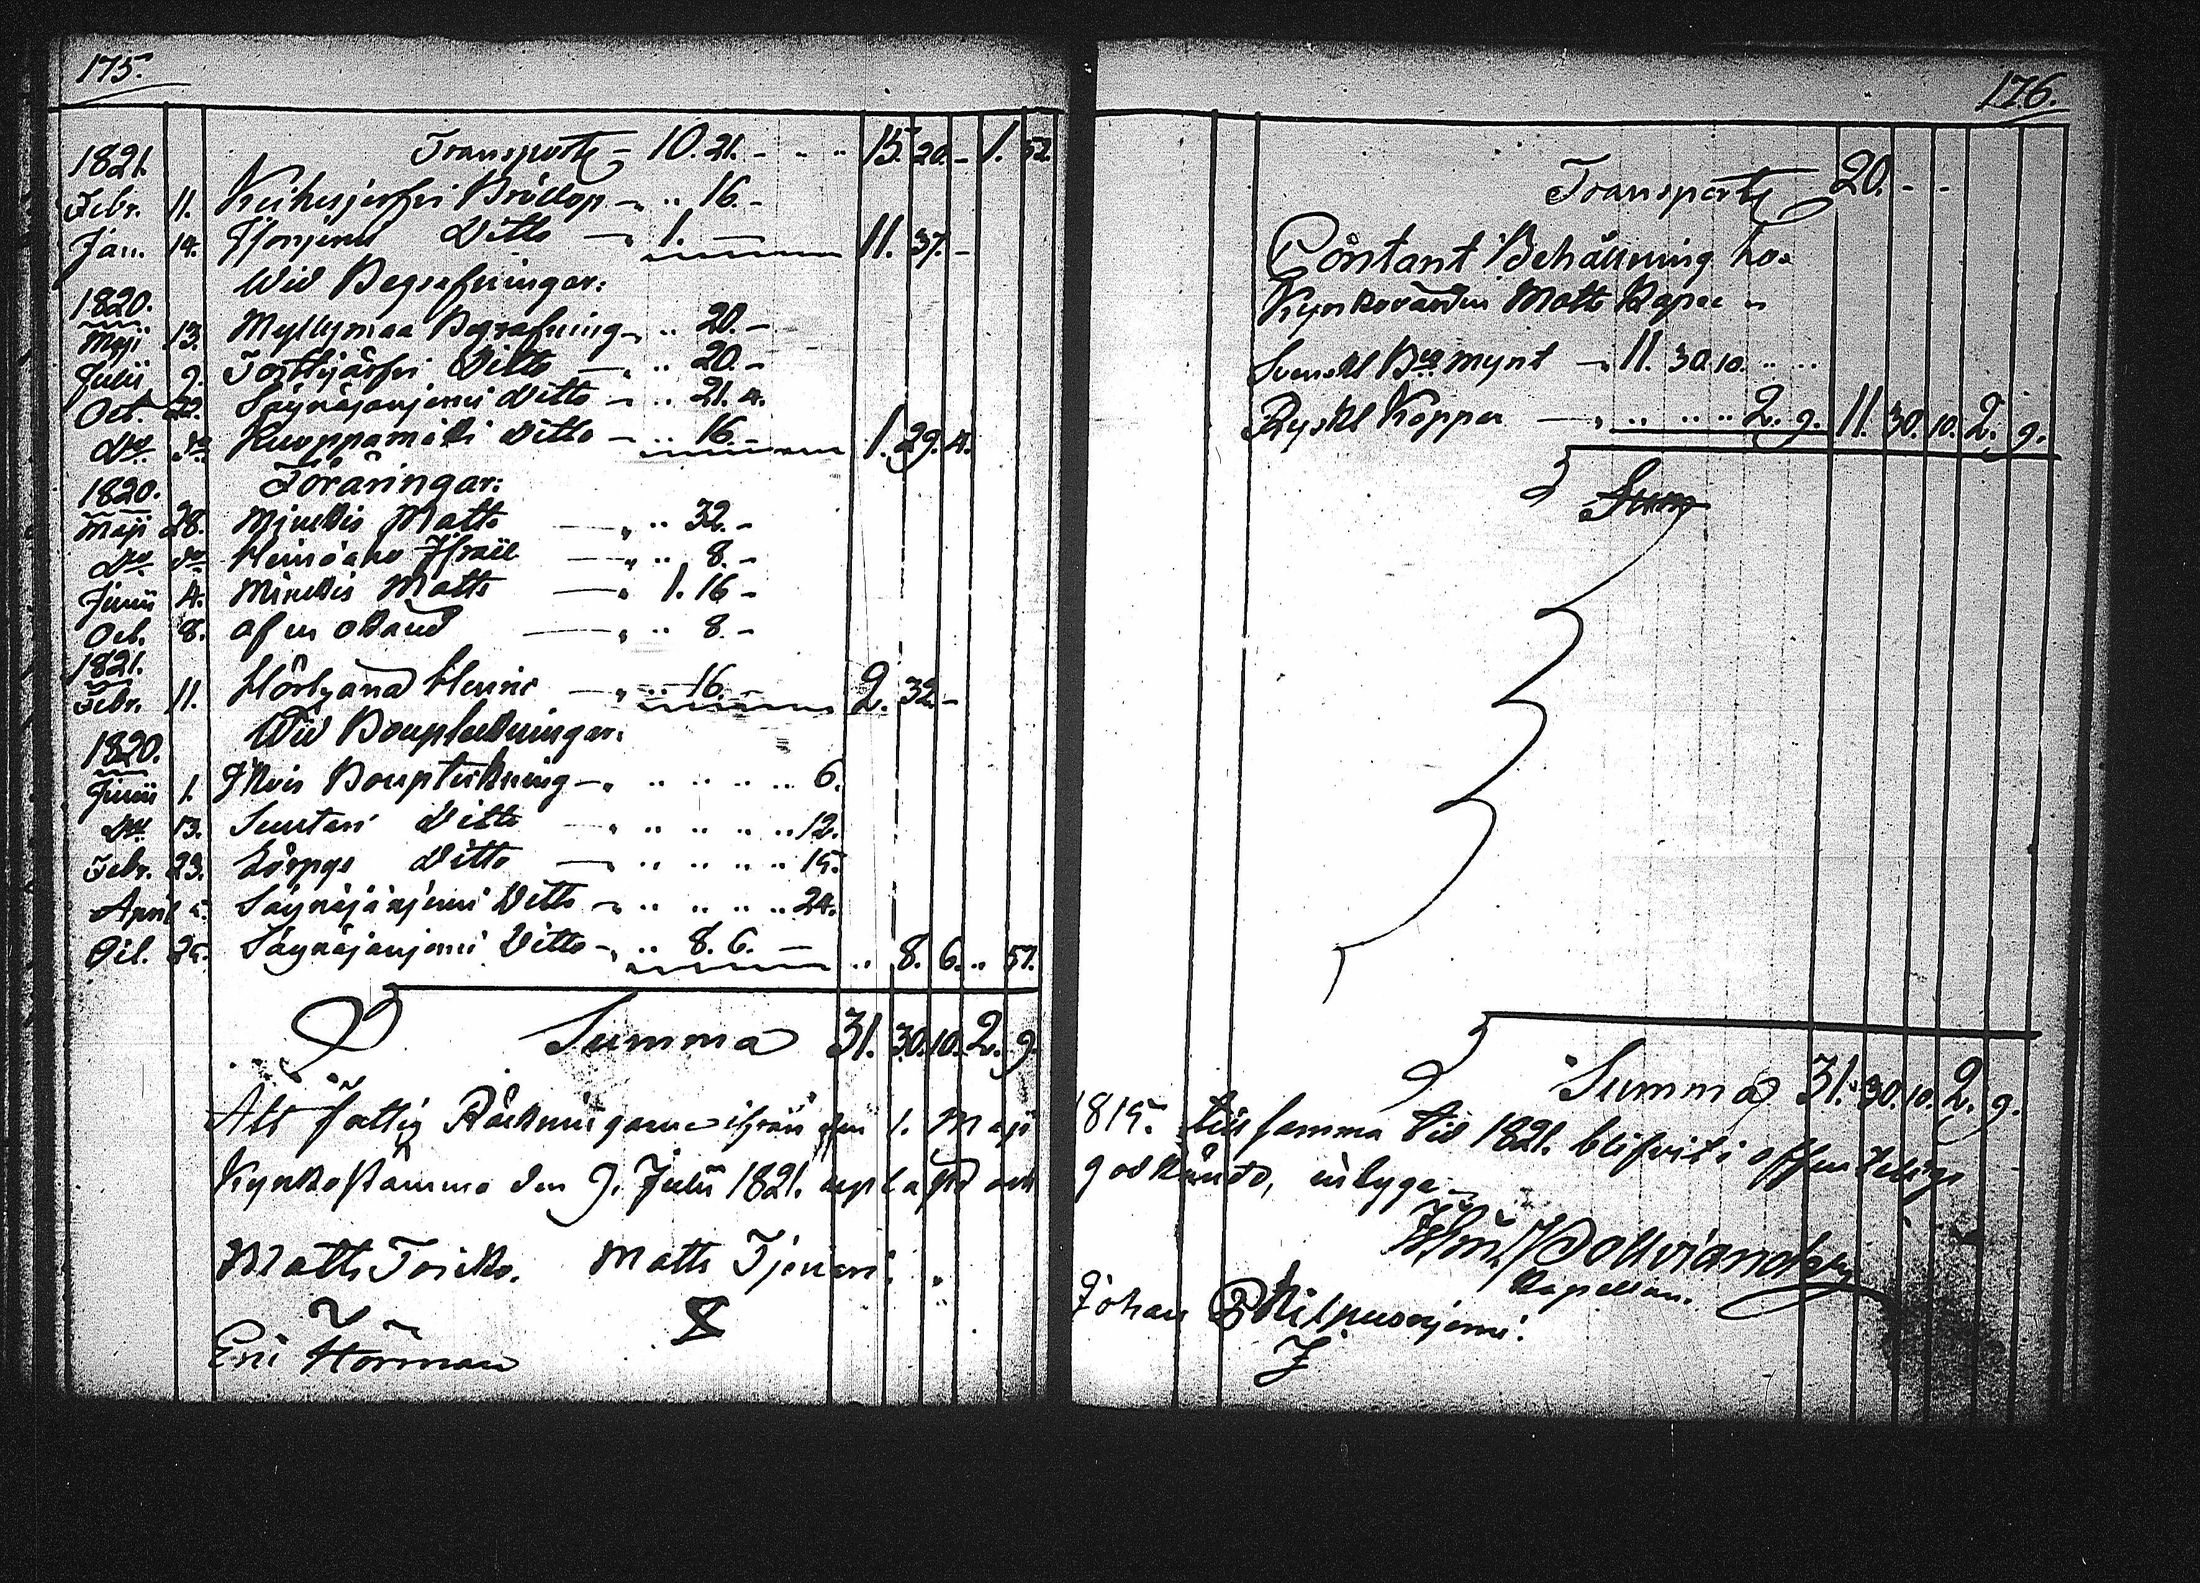 175.
1821. Transport 10. 21. - 15. 20. - 1. 52.
Febr. 11. Keihesjerfvi Bröllop - .. 16. -
Jan. 14. Ditto - 1. - 11. 37. -
Wid Begrafningar:
1820.
Maji 13. Myllymaa Begrafning - .. 20. -
Julii 9. Ditto - .. 20. -
Oct. 22. Säynäjänjemi Ditto - .. 21. 4.
Do Do Kuoppamäki Ditto - .. 16. - 1. 29. 4.
1820. Föräringar:
Maji 28. Matts - .. 32. -
Do Do Heinåaho Jfrael - .. 8. -
Junii 4. Matts - 1. 16 -
Oct. 8. af en okänd - .. 8. -
1821.
Febr. 11. - .. 16. - 2. 32. -
Wid Bouptekningar.
1820.
Junii 1. Bouptekning - .. .. .. .. 6.
Do 13. Suutari Ditto - .. .. .. .. 12.
Febr. 23. Ditto - .. .. .. .. 15.
April 5. Säynäjänjemi Ditto - .. .. .. .. 24.
Oct. 25. Säynäjänjemi Ditto - .. 8. 6. - .. 8. 6. .. 57.
Summa 31. 30. 10. 2. 9.
Att fattig Räkningarne ifrån den 1. Maji
Kyrkostämma den 9. Julii 1821. uplaste och
Matts Matts
Eric Hörman
176.
Transport 20. - -
Contant Behållning hos
Kyrkovärden Matts
Svenskt Bco mynt - 11. 30. 10. .. ..
Ryskt Koppar - .. .. .. 2. 9. 11. 30. 10. 2. 9.
Sum
Summa 31. 30. 10. 2. 9.
1815. till samma tid 1821. blifvit i offentelige
godkände, intyga
Kapellan.
Johan Kilpuanjemi.